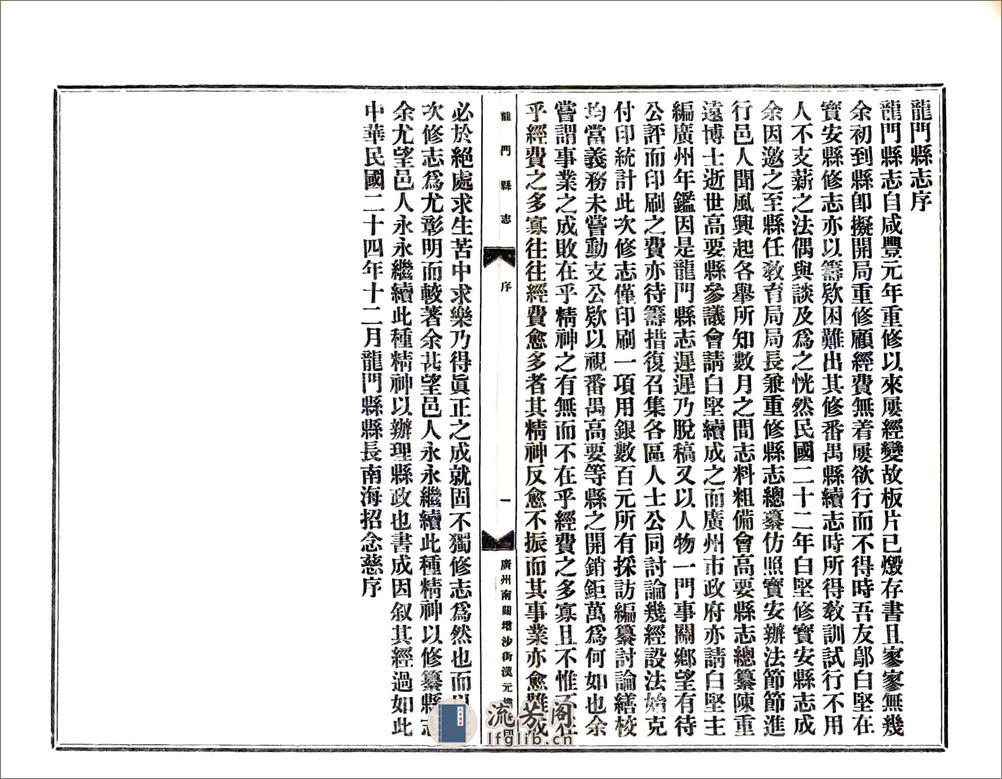 龍門縣志序
龍門縣志自咸豐元年重修以來屢經變故板片已燬存書且寥寥無幾
余初到縣卽擬開局重修顧經費無着屢欲行而不得時吾友鄔白堅在
寶安縣修志亦以籌欵困難出其修番禺縣續志時所得敎訓試行不用
人不支薪之法偶與談及為之恍然民國二十二年白堅修寶安縣志成
余因邀之至縣任敎育局局長兼重修縣志總纂仿照寶安辦法節節進
行邑人聞風興起各舉所知數月之間志料粗備會高要縣志總纂陳重
遠博士逝世高要縣參議會請白堅續成之而廣州市政府亦請白堅主
編廣州年鑑因是龍門縣志遲遲乃脫稿又以人物一門事關鄉望有待
公評而印刷之費亦待籌措復召集各區人士公同討論幾經設法始克
付印統計此次修志僅印刷一項用銀數百元所有採訪編纂討論繕校
均當義務未嘗動支公欵以視番禺高要等縣之開銷鉅萬為何如也余
嘗謂事業之成敗在乎精神之有無而不在乎經費之多寡且不惟不在
乎經費之多寡往往經費愈多者其精神反愈不振而其事業亦愈難成
龍門縣志
序
一
廣州南關增沙街漢元樓
必於絕處求生苦中求樂乃得眞正之成就固不獨修志為然也而以
次修志為尤彰明而較著余甚望邑人永永繼續此種精神以修纂縣志
余尤望邑人永永繼續此種精神以辦理縣政也書成因叙其經過如此
中華民國二十四年十二月龍門縣縣長南海招念慈序
流芳閣
lfglib.cn